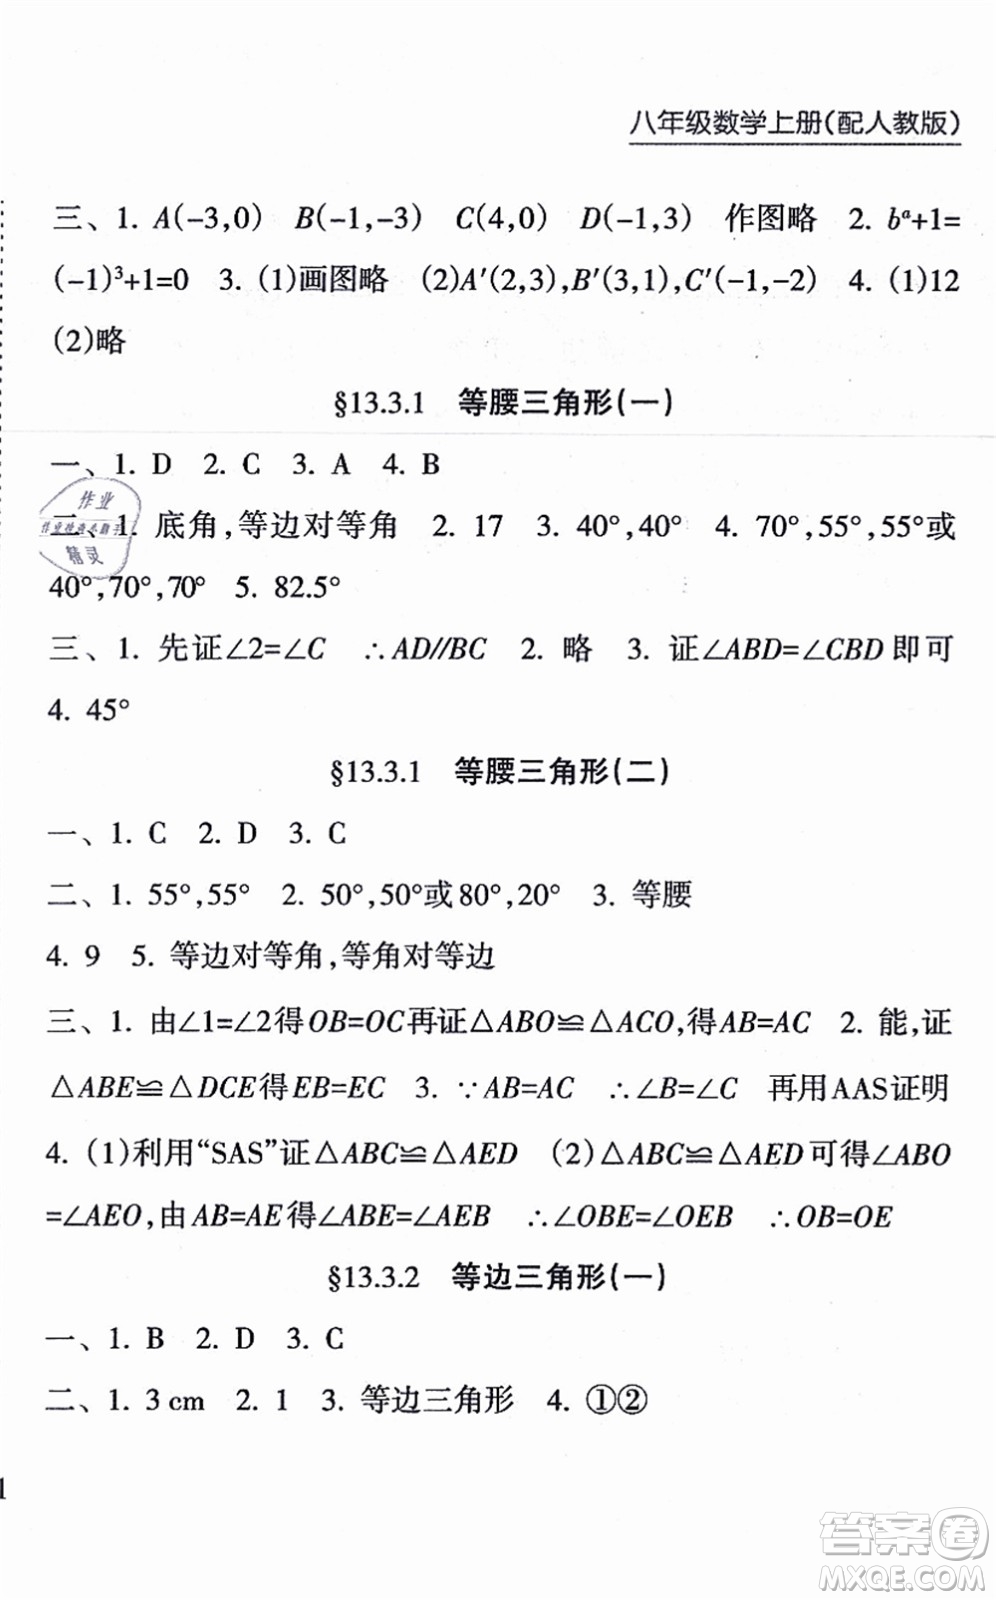 八年级数学上册(配人教版)
三、1. A(-3,0) B(-1,-3) C(4,0) D(-1,3) 作图略 2. bᵃ+1=
(-1)³+1=0 3. (1)画图略 (2)A′(2,3),B′(3,1),C′(-1,-2) 4. (1)12
(2)略
§13.3.1 等腰三角形(一)
一、1. D 2. C 3. A 4. B
作业
二、1. 底角,等边对等角 2. 17 3. 40°,40° 4. 70°,55°,55°或
精灵
40°,70°,70° 5. 82.5°
三、1. 先证∠2=∠C ∴AD//BC 2. 略 3. 证∠ABD=∠CBD即可
4. 45°
§13.3.1 等腰三角形(二)
一、1. C 2. D 3. C
二、1. 55°,55° 2. 50°,50°或80°,20° 3. 等腰
4. 9 5. 等边对等角,等角对等边
三、1. 由∠1=∠2得OB=OC再证△ABO≌△ACO,得AB=AC 2. 能,证
△ABE≌△DCE得EB=EC 3. ∵AB=AC ∴∠B=∠C 再用AAS证明
4. (1)利用“SAS”证△ABC≌△AED (2)△ABC≌△AED可得∠ABO
=∠AEO,由AB=AE得∠ABE=∠AEB ∴∠OBE=∠OEB ∴OB=OE
§13.3.2 等边三角形(一)
一、1. B 2. D 3. C
二、1. 3 cm 2. 1 3. 等边三角形 4. ①②
1
答案卷
MXQE.COM